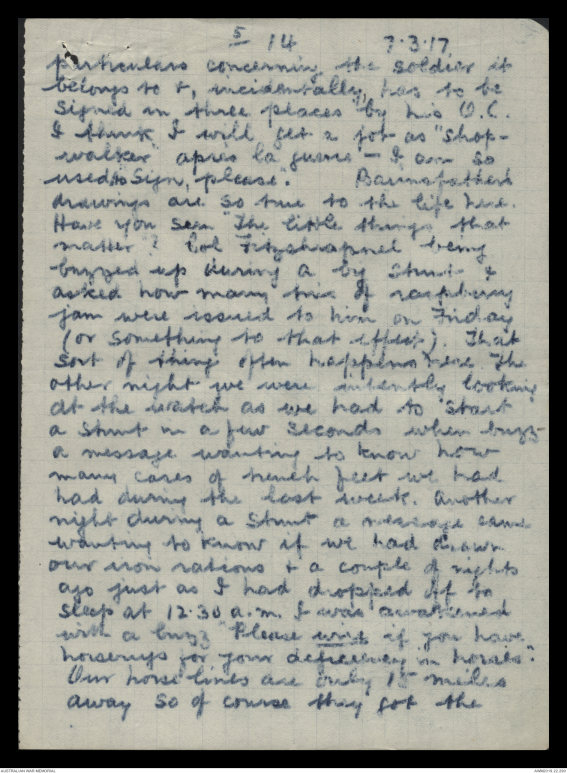 5
14 7.3.17.
particulars concerning the soldier it
belongs to &, incidentally, has to be
signed in three places" by his O.C.
I think I will get a job as "shop-
walker" apres la guerre – I am so
used to "Sign, please". Bairnsfather's
drawings are so true to the life here.
Have you seen "The little things that
matter"? Col Fitzshrapnel being
buzzed up during a big stunt &
asked how many tins of raspberry
jam were issued to him on Friday
(or something to that effect). That
sort of thing often happens here. The
other night we were intently looking
at the watch as we had to start
a stunt in a few seconds when buzz
a message wanting to know how
many cases of trench feet we had
had during the last week. Another
night during a stunt a message came
wanting to know if we had drawn
our iron rations & a couple of nights
ago just as I had dropped off to
sleep at 12.30 a.m. I was awakened
with a buzz "Please wire if you have
horserugs for your deficiency in horses".
Our horse lines are only 15 miles
away so of course they got the
AUSTRALIAN WAR MEMORIAL